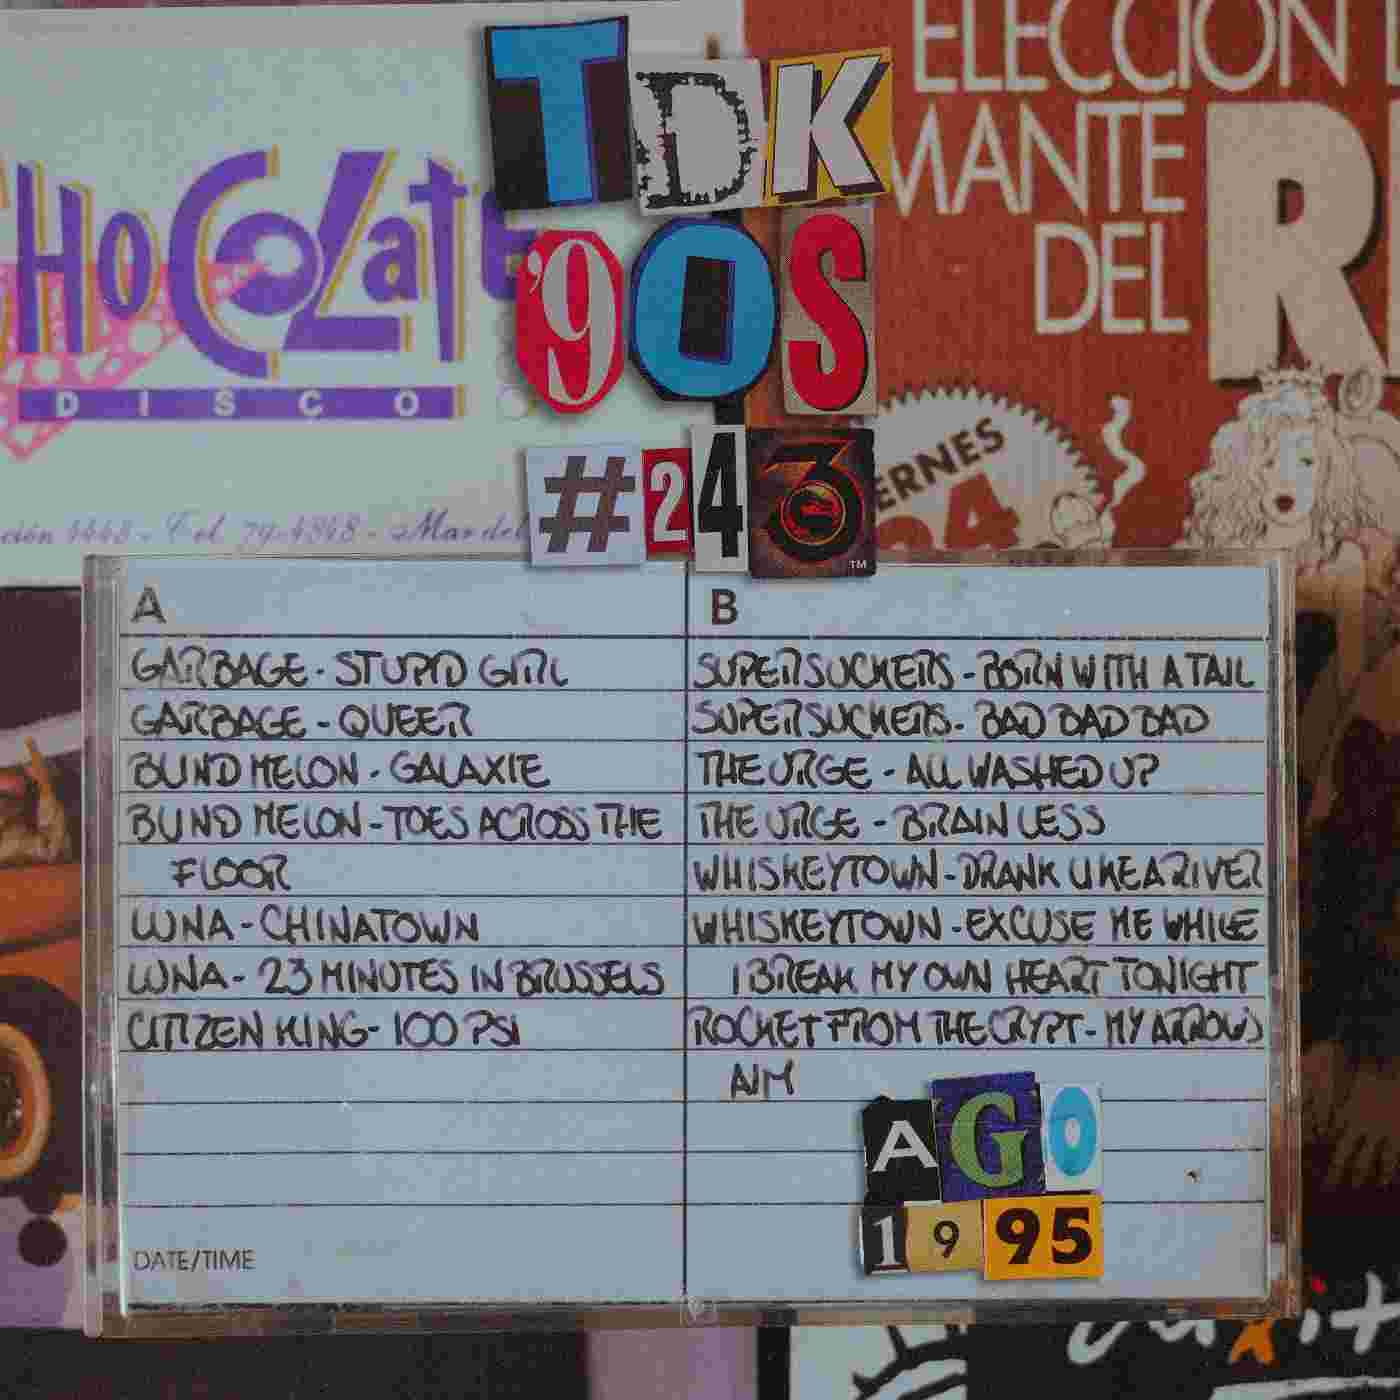 TDK
'90S
#243
TM
CHOCOLATE
DISCO
ción 4448 - Tel. 79-4848 - Mar del
ELECCION
MANTE
DEL
R
ERNES
24
A
GARBAGE - STUPID GIRL
GARBAGE - QUEER
BLIND MELON - GALAXIE
BLIND MELON - TOES ACROSS THE
FLOOR
LUNA - CHINATOWN
LUNA - 23 MINUTES IN BRUSSELS
CITIZEN KING - 100 PSI
DATE/TIME
B
SUPERSUCKERS - BORN WITH A TAIL
SUPERSUCKERS - BAD BAD BAD
THE URGE - ALL WASHED UP
THE URGE - BRAINLESS
WHISKEYTOWN - DRANK LIKE A RIVER
WHISKEYTOWN - EXCUSE ME WHILE
I BREAK MY OWN HEART TONIGHT
ROCKET FROM THE CRYPT - MY ARROWS
AIM
AGO
1995